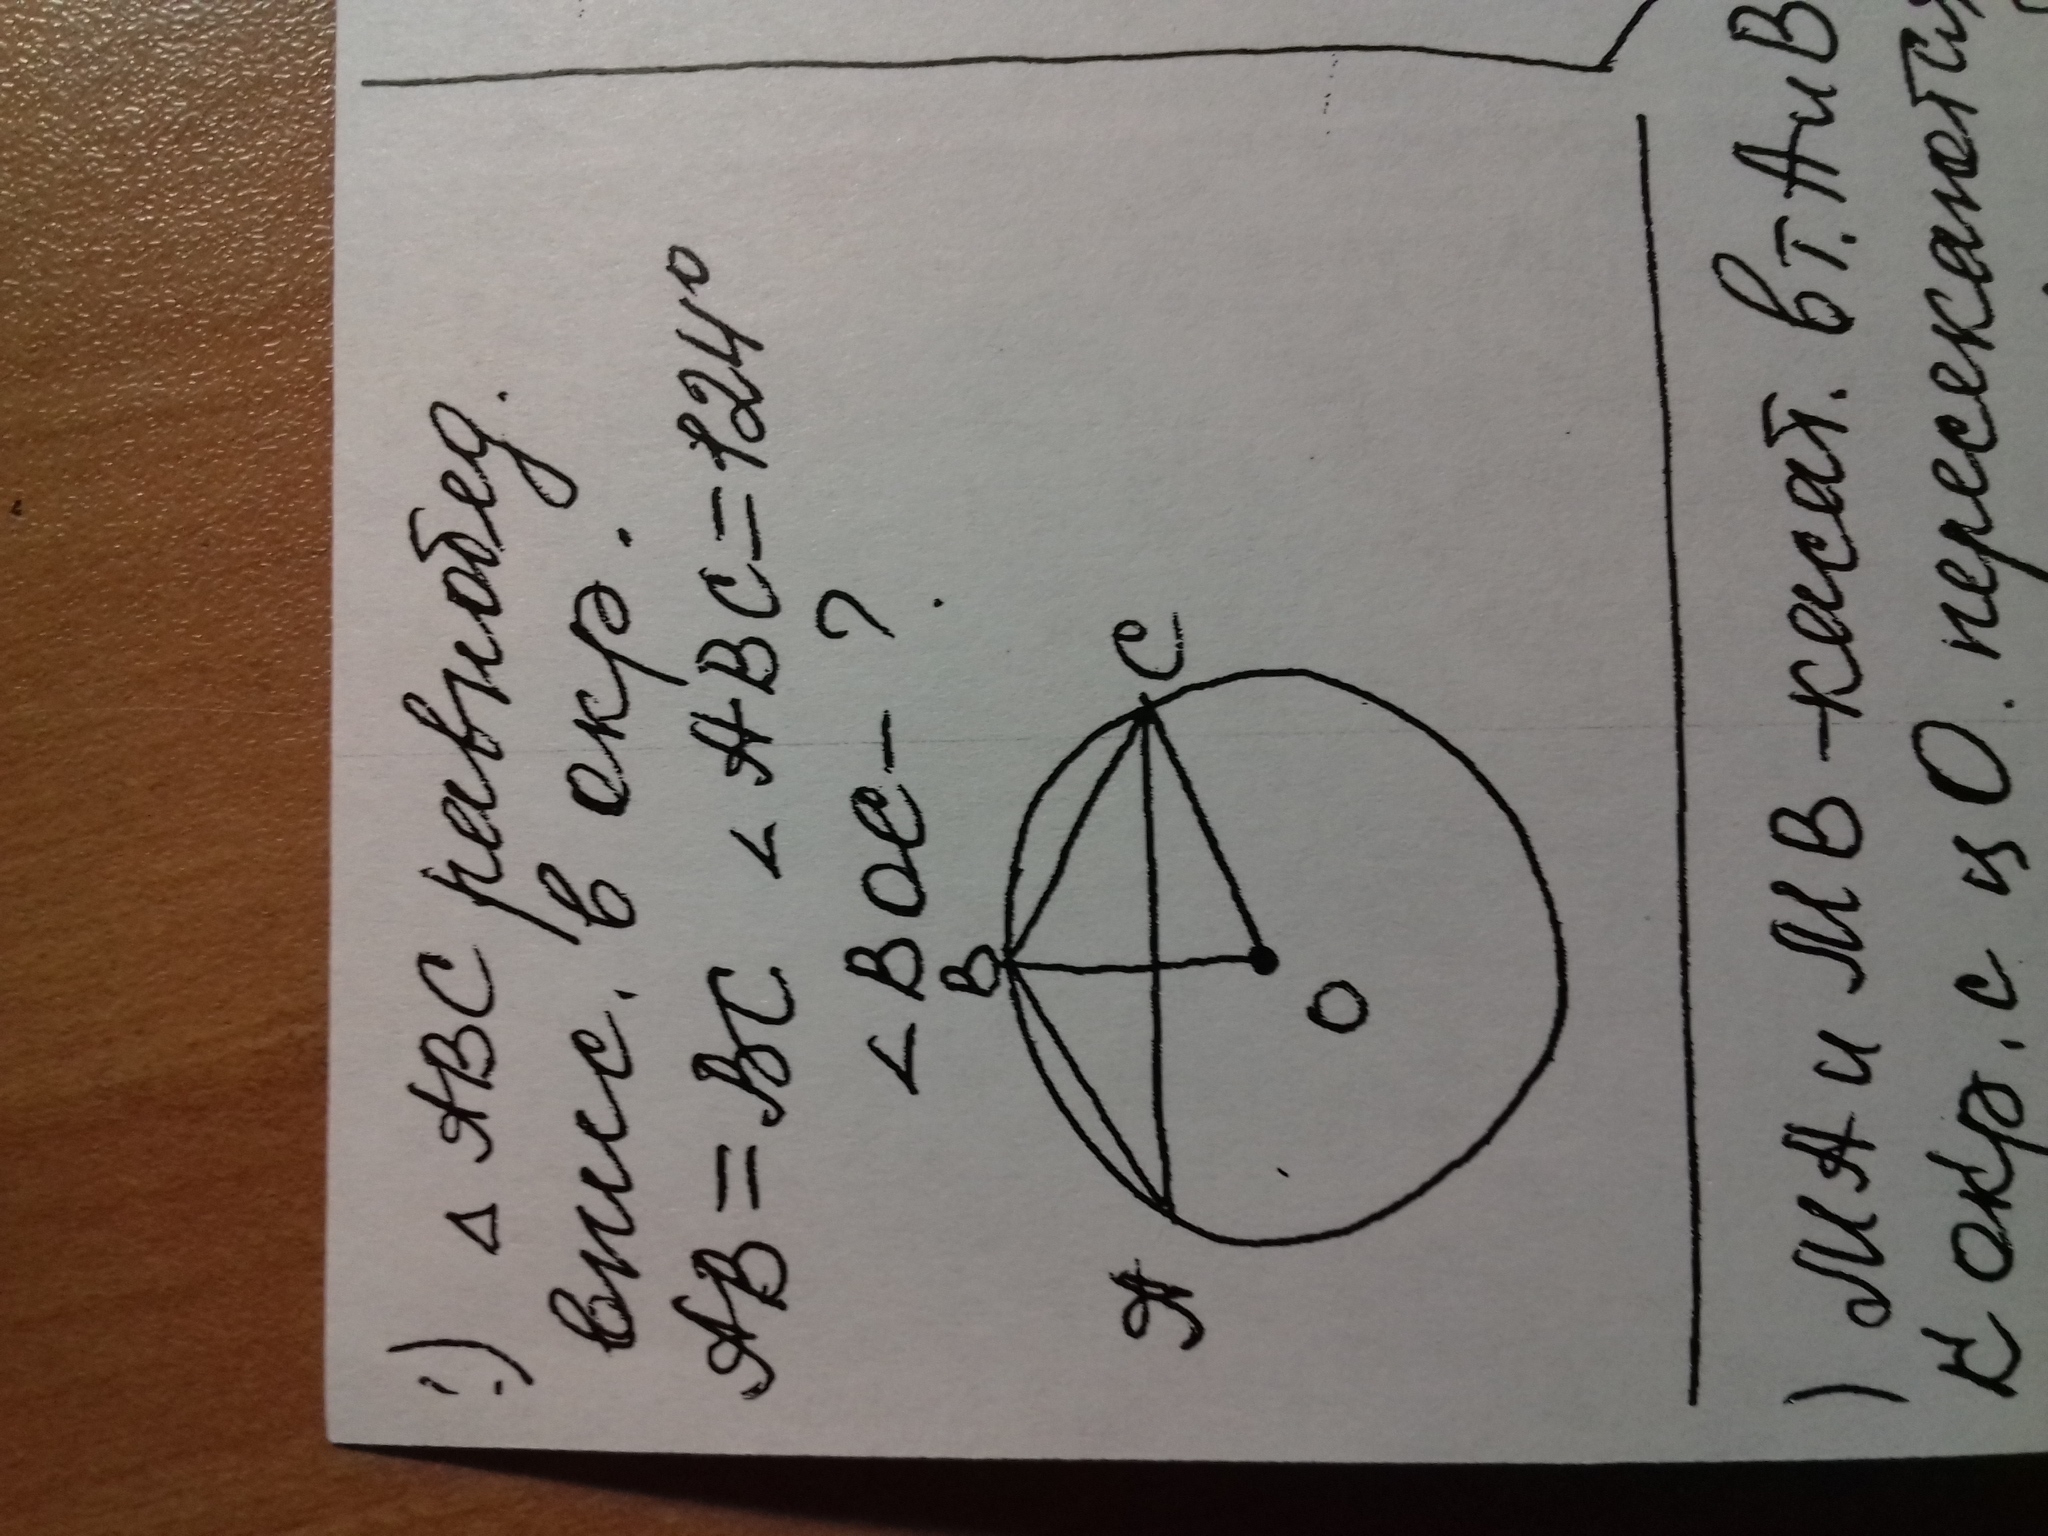 1.) △ ABC равнобед.
впис. в окр.
AB = BC < ABC = 124°
< BOC - ?
B
C
A
O
) MA и MB - касат. в т. A и B
к окр. с ц O. пересекаются